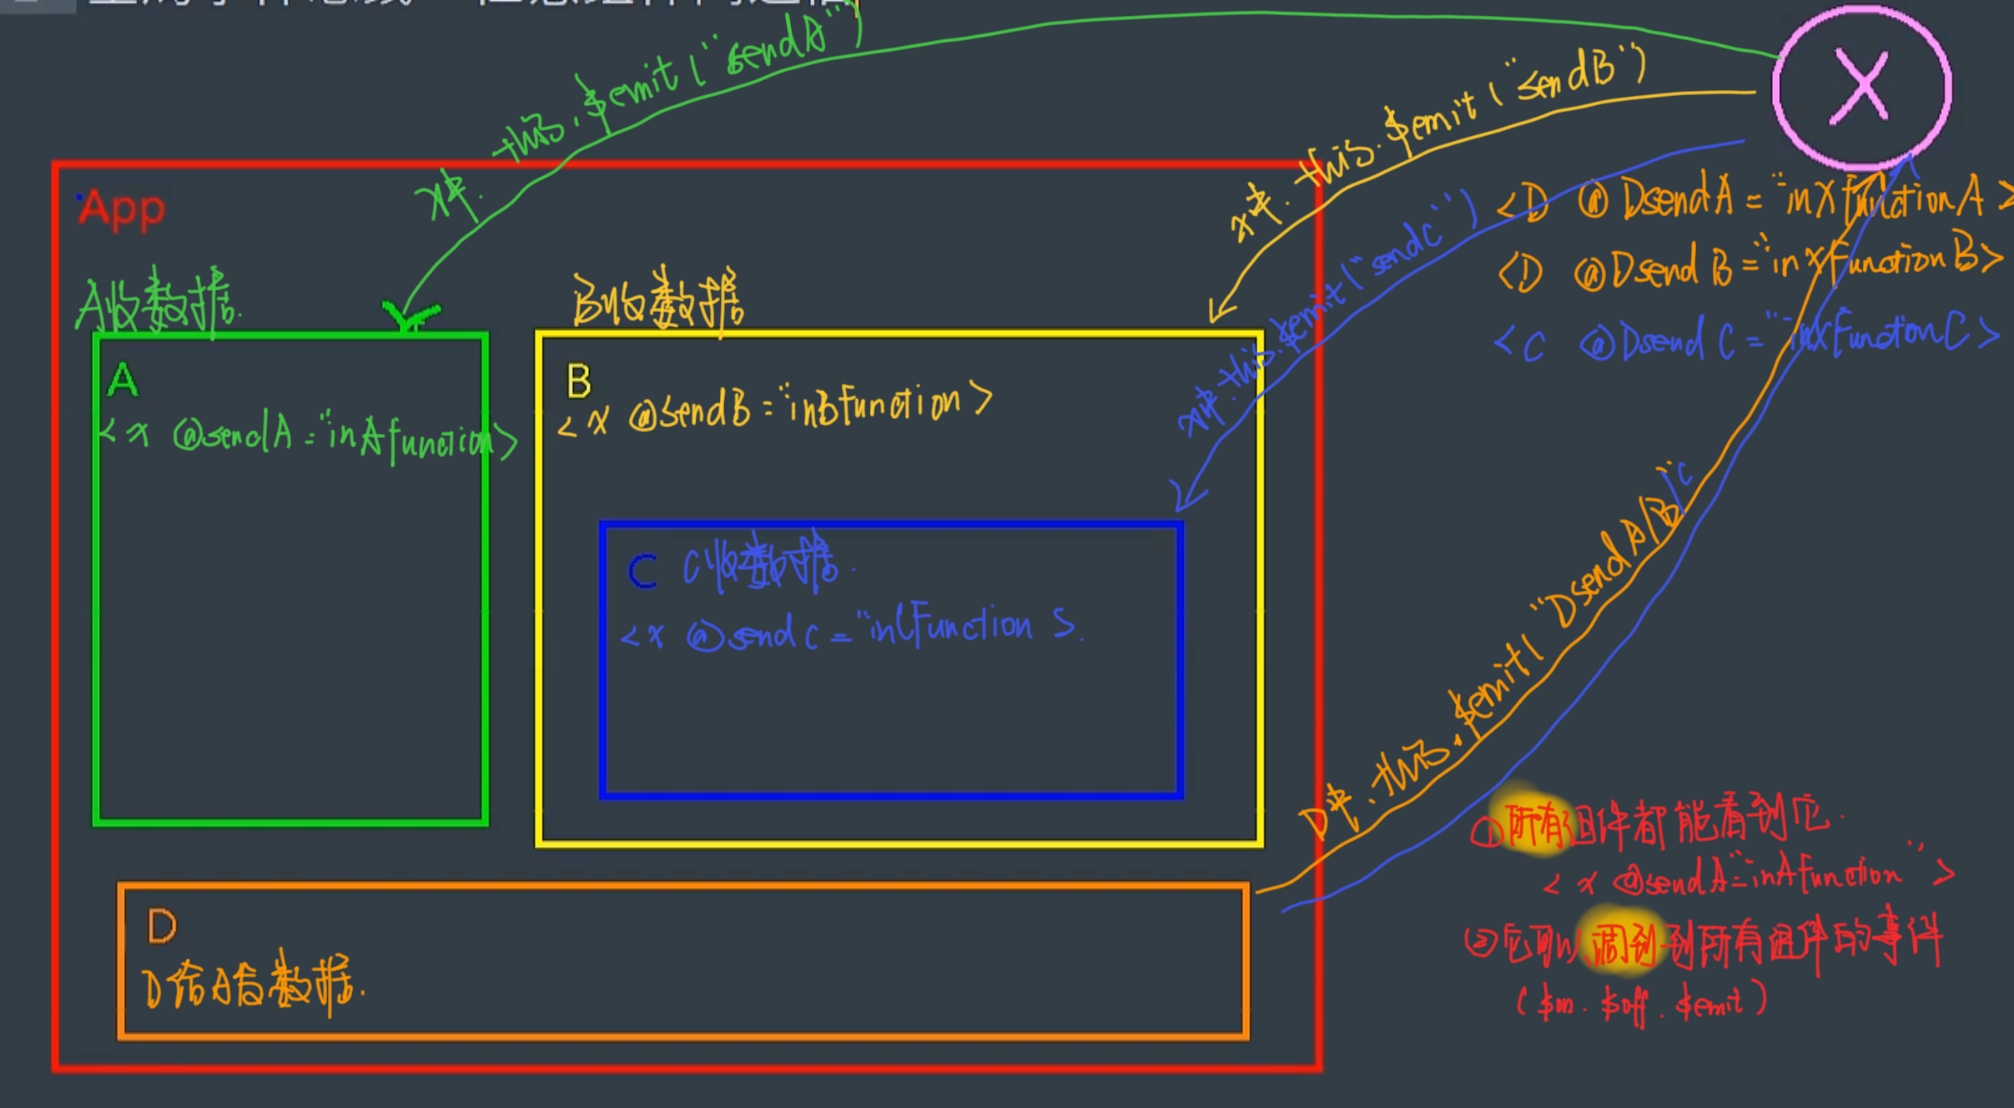 x中. this.$emit("sendA")
x中. this.$emit("sendB")
x中.this.$emit("sendC")
X
App
<D @DsendA="inXfunctionA>
<D @DsendB="inXfunctionB>
<C @DsendC="inXfunctionC>
A收数据.
B收数据
A
<x @sendA="inAfunction>
B
<x @sendB="inBfunction>
C C收数据.
<x @sendC="inCFunction S.
D中.this.$emit("DsendA/B/C
①所有组件都能看到它.
<x @sendA="inAfunction">
②它可以调到到所有组件的事件
($on.$off.$emit)
D
D给A发数据.